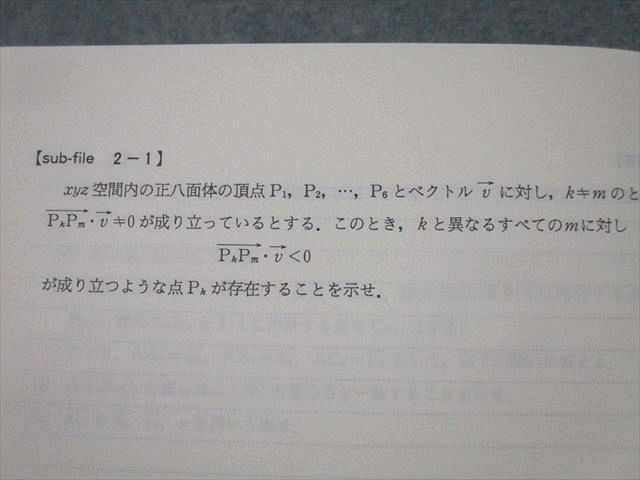 【sub-file 2－1】
xyz空間内の正八面体の頂点P₁, P₂, …, P₆とベクトル v→ に対し，k≠mのと
PₖPₘ→・v→≠0が成り立っているとする．このとき，kと異なるすべてのmに対し
PₖPₘ→・v→＜0
が成り立つような点Pₖが存在することを示せ．